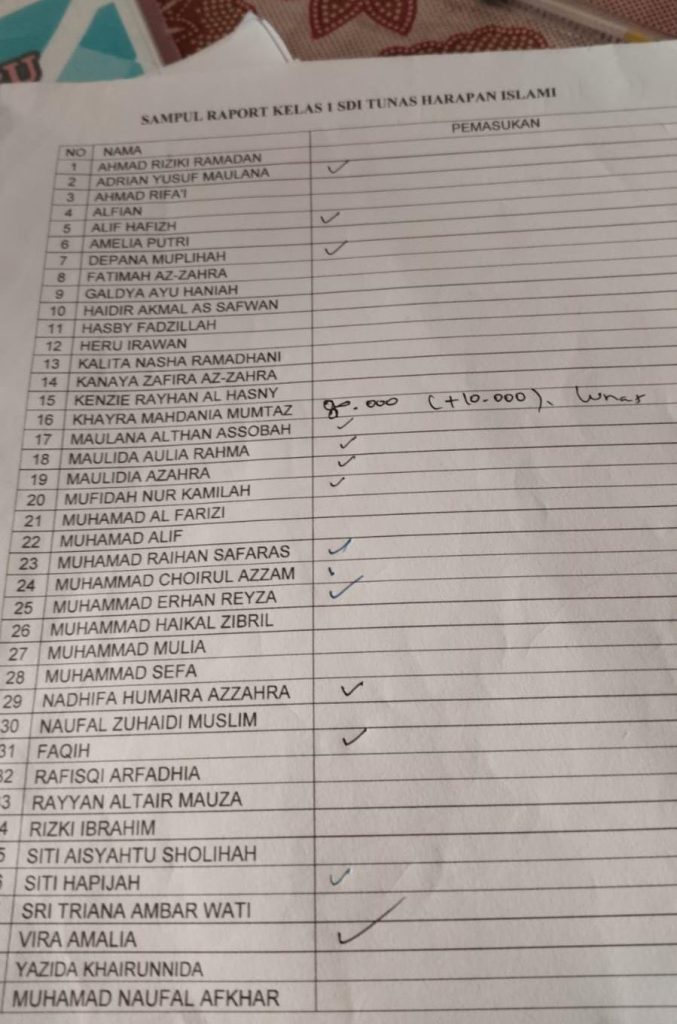 RU
SAMPUL RAPORT KELAS 1 SDI TUNAS HARAPAN ISLAMI
NO NAMA PEMASUKAN
1 AHMAD RIZIKI RAMADAN
2 ADRIAN YUSUF MAULANA ✓
3 AHMAD RIFA'I
4 ALFIAN
5 ALIF HAFIZH ✓
6 AMELIA PUTRI
7 DEPANA MUPLIHAH ✓
8 FATIMAH AZ-ZAHRA
9 GALDYA AYU HANIAH
10 HAIDIR AKMAL AS SAFWAN
11 HASBY FADZILLAH
12 HERU IRAWAN
13 KALITA NASHA RAMADHANI
14 KANAYA ZAFIRA AZ-ZAHRA
15 KENZIE RAYHAN AL HASNY
16 KHAYRA MAHDANIA MUMTAZ (+10.000), lunas
17 MAULANA ALTHAN ASSOBAH ✓
18 MAULIDA AULIA RAHMA ✓
19 MAULIDIA AZAHRA ✓
20 MUFIDAH NUR KAMILAH ✓
21 MUHAMAD AL FARIZI
22 MUHAMAD ALIF
23 MUHAMAD RAIHAN SAFARAS ✓
24 MUHAMMAD CHOIRUL AZZAM ✓
25 MUHAMMAD ERHAN REYZA ✓
26 MUHAMMAD HAIKAL ZIBRIL
27 MUHAMMAD MULIA
28 MUHAMMAD SEFA
29 NADHIFA HUMAIRA AZZAHRA ✓
30 NAUFAL ZUHAIDI MUSLIM
31 FAQIH ✓
32 RAFISQI ARFADHIA
3 RAYYAN ALTAIR MAUZA
4 RIZKI IBRAHIM
5 SITI AISYAHTU SHOLIHAH
SITI HAPIJAH ✓
SRI TRIANA AMBAR WATI
VIRA AMALIA ✓
YAZIDA KHAIRUNNIDA
MUHAMAD NAUFAL AFKHAR